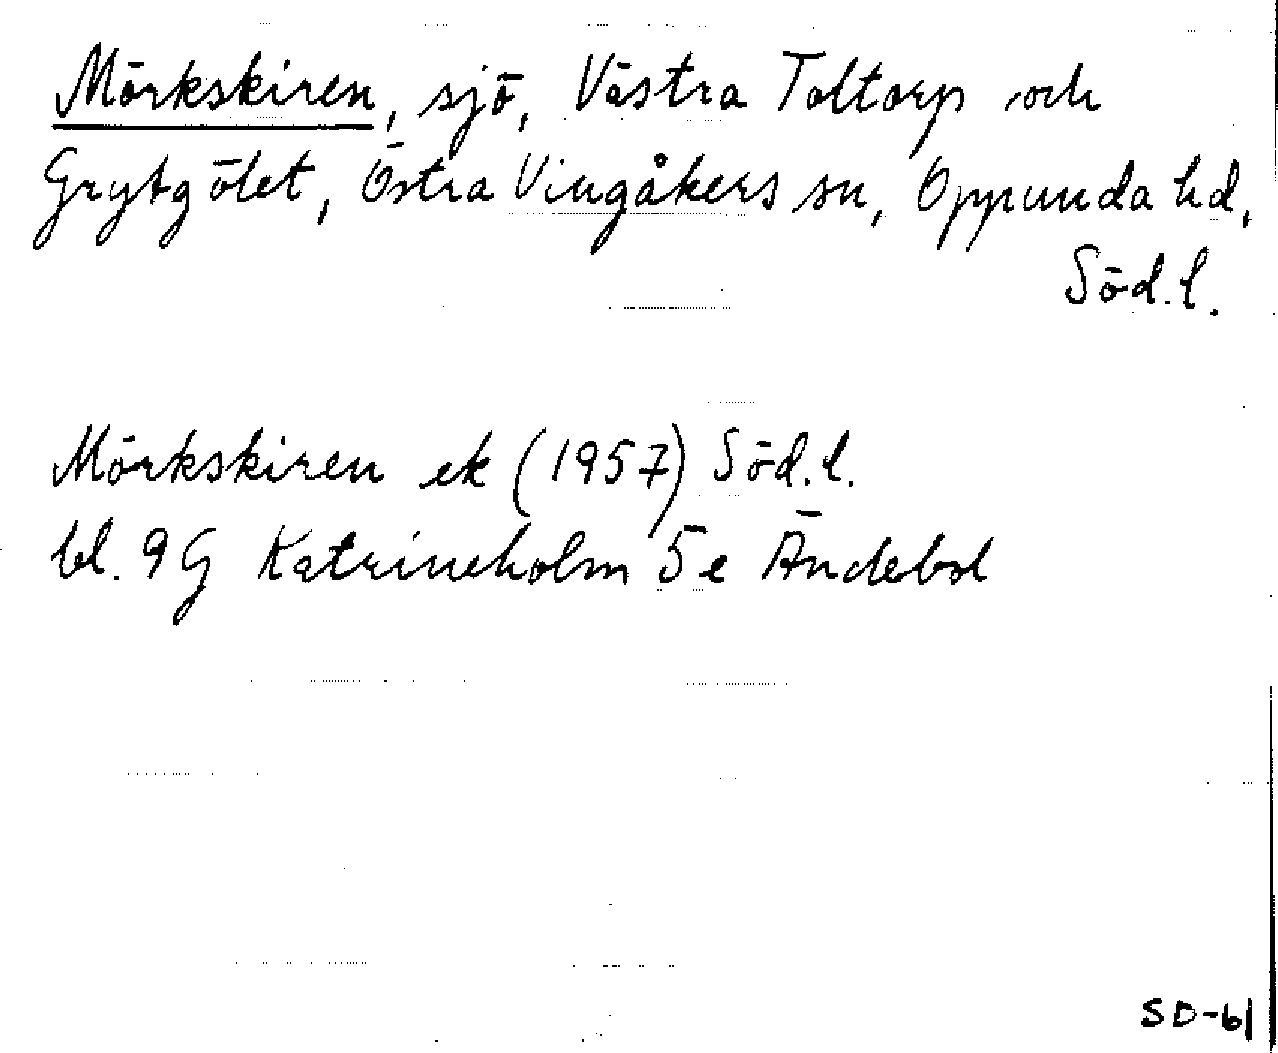 Mörkskiren, sjö, Västra Toltorp och
Grytgölet, Östra Vingåkers sn, Oppunda hd,
Söd.l.
Mörkskiren ek (1957) Söd.l.
bl. 9G Katrineholm 5e Ändebol
SD-61